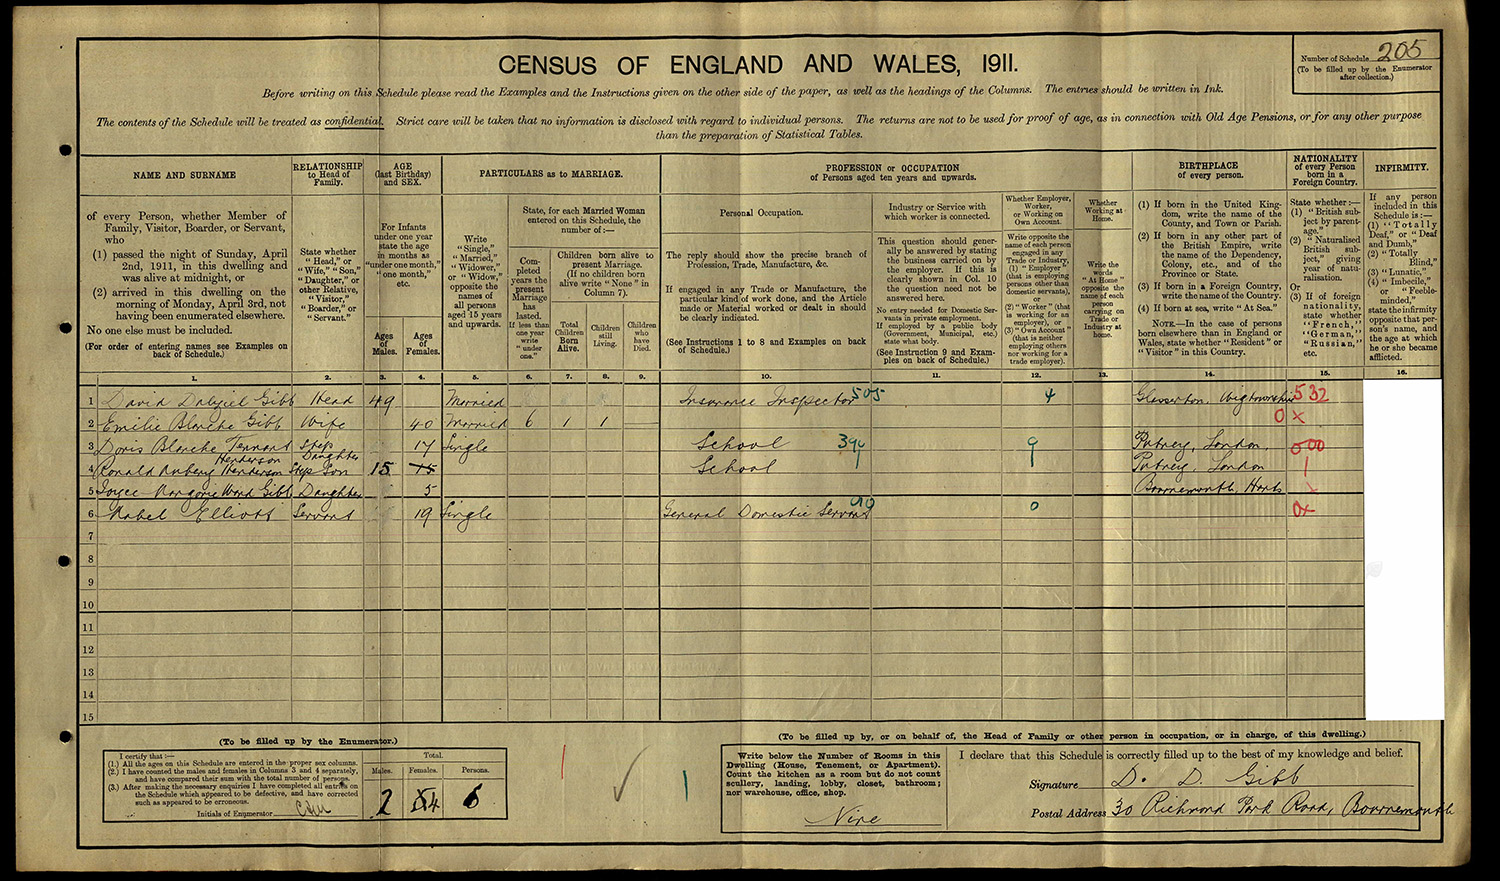 205
Number of Schedule
(To be filled up by the Enumerator
after collection.)
CENSUS OF ENGLAND AND WALES, 1911.
Before writing on this Schedule please read the Examples and the Instructions given on the other side of the paper, as well as the headings of the Columns. The entries should be written in Ink.
The contents of the Schedule will be treated as confidential. Strict care will be taken that no information is disclosed with regard to individual persons. The returns are not to be used for proof of age, as in connection with Old Age Pensions, or for any other purpose
than the preparation of Statistical Tables.
NAME AND SURNAME
of every Person, whether Member of
Family, Visitor, Boarder, or Servant,
who
(1) passed the night of Sunday, April
2nd, 1911, in this dwelling and
was alive at midnight, or
(2) arrived in this dwelling on the
morning of Monday, April 3rd, not
having been enumerated elsewhere.
No one else must be included.
(For order of entering names see Examples on
back of Schedule.)
RELATIONSHIP
to Head of
Family.
State whether
"Head," or
"Wife," "Son,"
"Daughter," or
other Relative,
"Visitor,"
"Boarder," or
"Servant."
AGE
(last Birthday)
and SEX.
For Infants
under one year
state the age
in months as
"under one month,"
"one month,"
etc.
Ages
of
Males.
Ages
of
Females.
PARTICULARS as to MARRIAGE.
Write
"Single,"
"Married,"
"Widower,"
or "Widow,"
opposite the
names of
all persons
aged 15 years
and upwards.
State, for each Married Woman
entered on this Schedule, the
number of:—
Com-
pleted
years the
present
Marriage
has
lasted.
If less than
one year
write
"under
one."
Children born alive to
present Marriage.
(If no children born
alive write "None" in
Column 7).
Total
Children
Born
Alive.
Children
still
Living.
Children
who
have
Died.
PROFESSION or OCCUPATION
of Persons aged ten years and upwards.
Personal Occupation.
The reply should show the precise branch of
Profession, Trade, Manufacture, &c.
If engaged in any Trade or Manufacture, the
particular kind of work done, and the Article
made or Material worked or dealt in should
be clearly indicated.
(See Instructions 1 to 8 and Examples on back
of Schedule.)
Industry or Service with
which worker is connected.
This question should gener-
ally be answered by stating
the business carried on by
the employer. If this is
clearly shown in Col. 10
the question need not be
answered here.
No entry needed for Domestic Ser-
vants in private employment.
If employed by a public body
(Government, Municipal, etc.)
state what body.
(See Instruction 9 and Exam-
ples on back of Schedule.)
Whether Employer,
Worker,
or Working on
Own Account.
Write opposite the
name of each person
engaged in any
Trade or Industry,
(1) "Employer"
(that is employing
persons other than
domestic servants),
or
(2) "Worker" (that
is working for an
employer), or
(3) "Own Account"
(that is neither
employing others
nor working for a
trade employer).
Whether
Working at
Home.
Write the
words
"At Home"
opposite the
name of each
person
carrying on
Trade or
Industry at
home.
BIRTHPLACE
of every person.
(1) If born in the United King-
dom, write the name of the
County, and Town or Parish.
(2) If born in any other part of
the British Empire, write
the name of the Dependency,
Colony, etc., and of the
Province or State.
(3) If born in a Foreign Country,
write the name of the Country.
(4) If born at sea, write "At Sea."
NOTE.—In the case of persons
born elsewhere than in England or
Wales, state whether "Resident" or
"Visitor" in this Country.
NATIONALITY
of every Person
born in a
Foreign Country.
State whether:—
(1) "British sub-
ject by parent-
age,"
(2) "Naturalised
British sub-
ject," giving
year of natu-
ralisation.
Or
(3) If of foreign
nationality,
state whether
"French,"
"German,"
"Russian,"
etc.
INFIRMITY.
If any person
included in this
Schedule is:—
(1) "Totally
Deaf," or "Deaf
and Dumb,"
(2) "Totally
Blind,"
(3) "Lunatic,"
(4) "Imbecile,"
or "Feeble-
minded,"
state the infirmity
opposite that per-
son's name, and
the age at which
he or she became
afflicted.
1. 2. 3. 4. 5. 6. 7. 8. 9. 10. 11. 12. 13. 14. 15. 16.
1 David Dalyziel Gibb Head 49 Married Insurance Inspector 505 4 Glasserton, Wigtownshire 532
2 Emilie Blanche Gibb Wife 40 Married 6 1 1 0 x
3 Doris Blanche Tennant Henderson Step Daughter 17 Single School 394 9 Putney, London 000
4 Ronald Henderson Step Son 15 15 School Putney, London
5 Joyce Marjorie Ward Gibb Daughter 5 Bournemouth Hants
6 Mabel Elliott Servant 19 Single General Domestic Servant 0 0x
7
8
9
10
11
12
13
14
15
(To be filled up by the Enumerator.)
I certify that:—
(1.) All the ages on this Schedule are entered in the proper sex columns.
(2.) I have counted the males and females in Columns 3 and 4 separately,
and have compared their sum with the total number of persons.
(3.) After making the necessary enquiries I have completed all entries on
the Schedule which appeared to be defective, and have corrected
such as appeared to be erroneous.
Initials of Enumerator
Total.
Males. Females. Persons.
2 4 6
(To be filled up by, or on behalf of, the Head of Family or other person in occupation, or in charge, of this dwelling.)
Write below the Number of Rooms in this
Dwelling (House, Tenement, or Apartment).
Count the kitchen as a room but do not count
scullery, landing, lobby, closet, bathroom;
nor warehouse, office, shop.
Nine
I declare that this Schedule is correctly filled up to the best of my knowledge and belief.
Signature D. D. Gibb
Postal Address 30 Richmond Park Road, Bournemouth